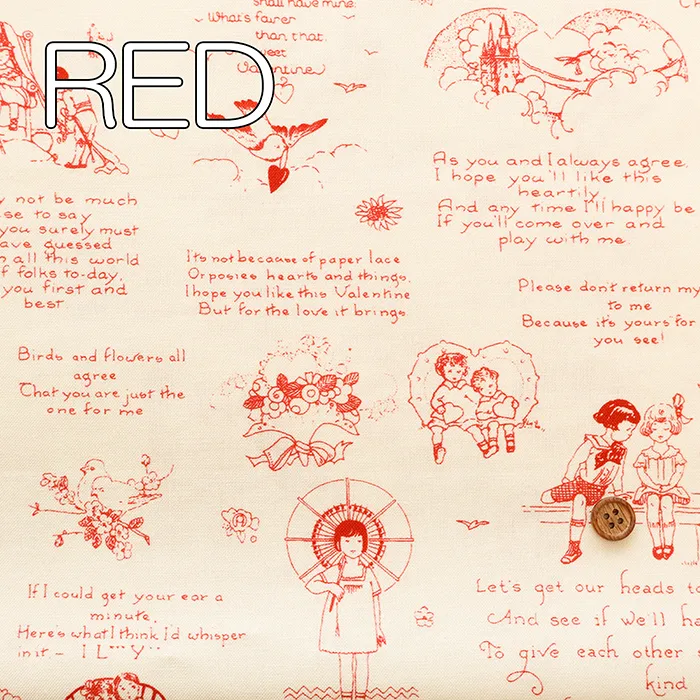 RED
shall have mine.
What's fairer
than that
Valentine
As you and I always agree
I hope you'll like this
heartily
And any time I'll happy be
If you'll come over and
play with me
y not be much
se to say
you surely must
ave guessed
n all this world
f folks to-day,
you first and
best.
It's not because of paper lace
Or posies hearts and things,
I hope you like this Valentine
But for the love it brings.
Please don't return my
to me
Because it's yours for
you see!
Birds and flowers all
agree
That you are just the
one for me
If I could get your ear a
minute,
Here's what I think I'd whisper
in it - I L*** Y**
Let's get our heads to
And see if we'll ha
To give each other s
kind